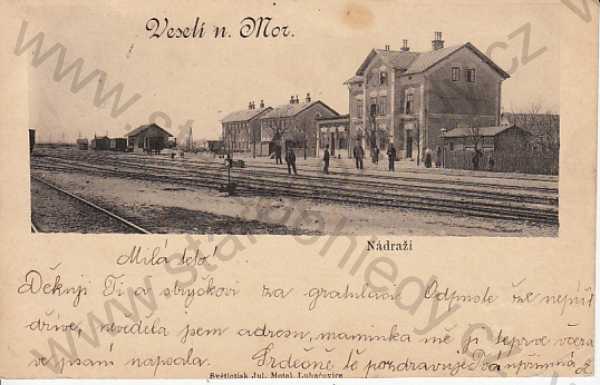 Veselí n. Mor.
Nádraží
Milá teto!
Děkuji Ti a strýčkovi za gratulaci Odpusťte že nepíši
dříve, nevěděla jsem adresu, maminka mě ji teprve včera
ve psaní napsala. Srdečně tě pozdravuje Tvá upřímná
Světlotisk Jul. Motal Luhačovice
www.starepohledy.cz